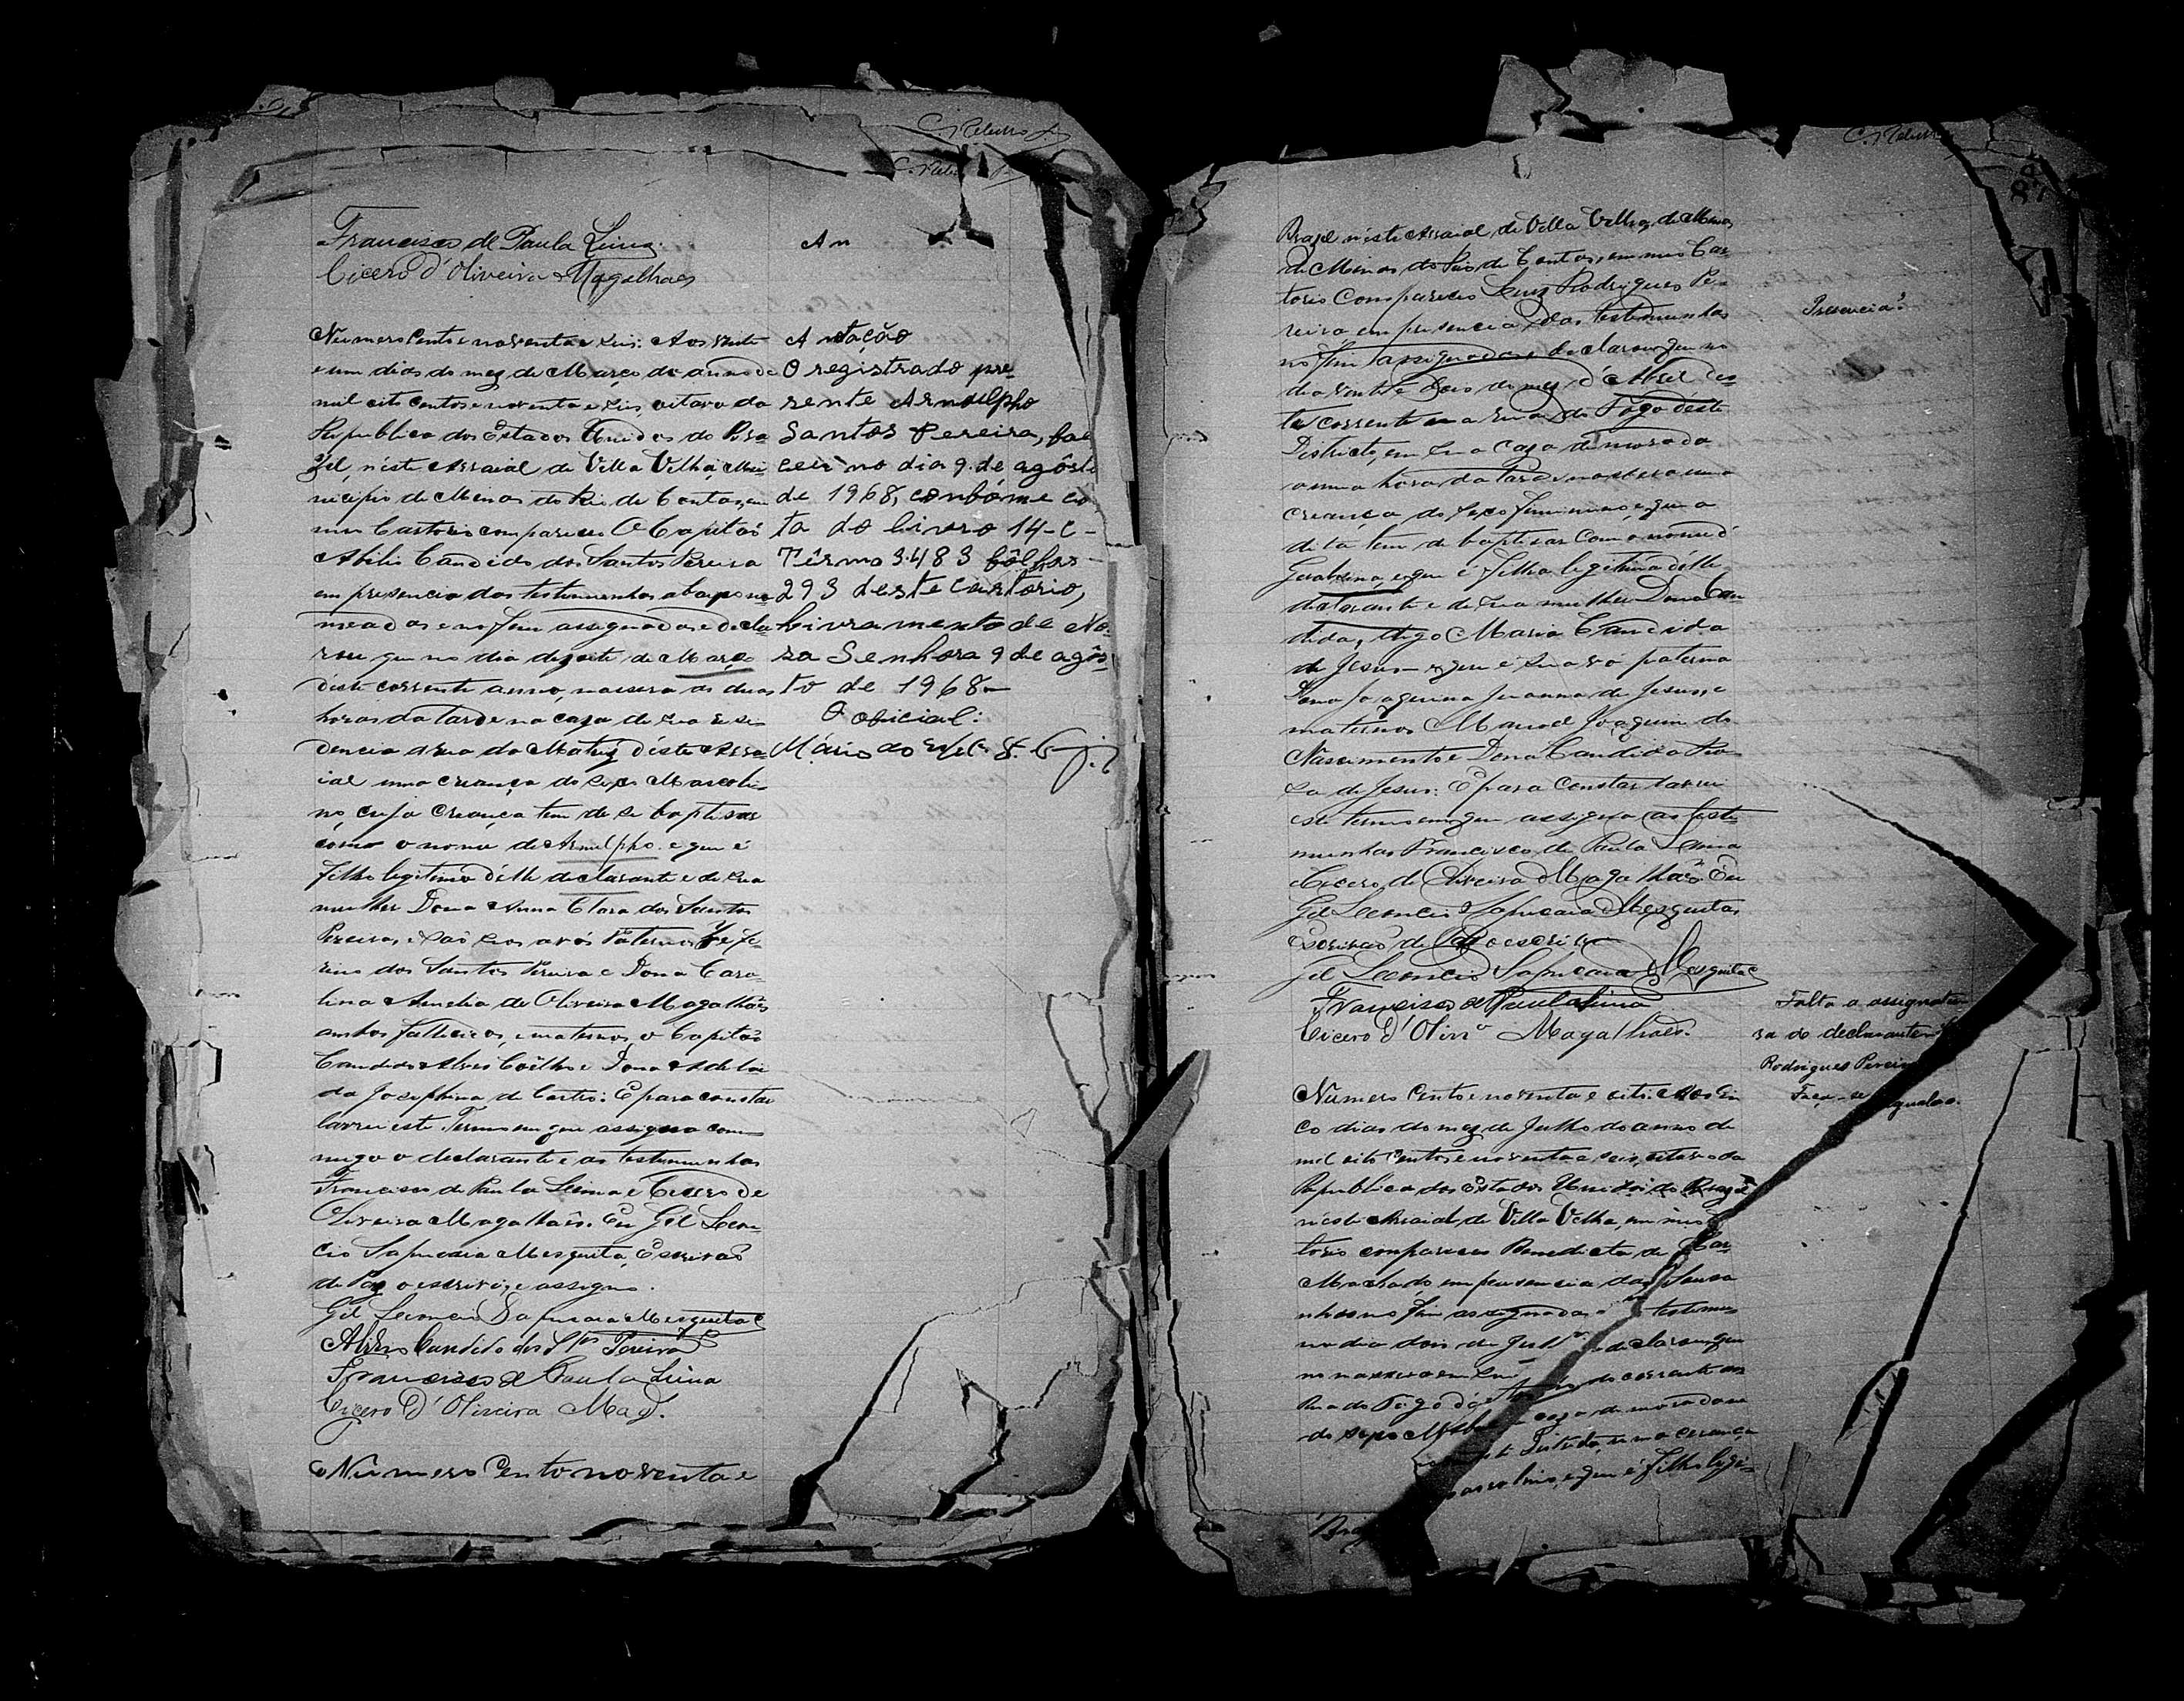 Francisco de Paula Lima.
Cicero d'Oliveira Magalhães
Numero Cento e noventa e seis. Aos vinte
e um dias do mez de Março do anno de
mil oito centos e noventa e seis, oitavo da
Republica dos Estados Unidos do Bra
zil, n'éste Arraial de Villa Velha, Mu
nicipio de Minas do Rio de Contas, em
meu Cartorio compareceu O Capitaõ
Abilio Candido dos Santos Pereira
em presencia das testemunhas abaixo no
meadas e no fim assignadas e decla
rou que no dia dezoito de Março
déste corrente anno, nascera as duas
horas da tarde na caza de sua resi
dencia a rua da Matriz déste Arra
ial uma creança do sexo Mascoli
no, cuja creança tem de se baptisar
como o nome de Arnulpho e que é
filho legitimo d'élle declarante e de sua
mulher Dona Anna Clara dos Santos
Pereira, e saõ seos avós Paternos
rino dos Santos Pereira e Dona Caro
lina Amelia de Oliveira Magalhães
ambos fallecidos, e maternos, o Capitaõ
Candido Alves Coêlho e Dona Adelai
da Josephina de Castro: E para constar
lavrei este Termo em que assigna com
migo o declarante e as testemunhas
Francisco de Paula Lima e Cicero de
Oliveira Magalhaês. Eu Gil Leon
cio Sapucaia Mesquita, Escrivaõ
de Paz o escrivi, e assigno.
Gil Leoncio Sapucaia Mesquita
Abilio Candido dos Stos Pereira
Francisco de Paula Lima
Cicero d'Oliveira Mag.
Numero Cento noventa e
C. Rebello
An
Anotação
O registrado pre-
sente Arnulpho
Santos Pereira, fale
ceu no dia 9 de agôsto
de 1968, confórme co
ta do livro 14-C-
Têrmo 3.483 fôlhas
293 deste cartório,
Livramento de No.
ssa Senhora 9 de agôs
to de 1968-
O oficial:
Mário do
C. Rebello
Brazil n'éste Arraial de Villa Velha,
de Minas do Rio de Contas, em meu Car
torio Compareceu Luiz Rodrigues Pe-
reira em presencia das testemunhas
no fim assignadas declarou que no
dia vinte e dois do mez d'Abril des
te corrente na rua do Fogo déste
Districto, em sua caza de morada
a uma hora da tarde nascera uma
creança do sexo feminino, e que a
dita tem de baptisar com o nome d
Geraldina, e que é filha legitima d'élle
declarante e de sua mulher Dona Can
dida, digo Maria Candida
de Jesus - e que é sua vó paterna
Dona Joaquina Joanna de Jesus, e
maternos Manoel Joaquim do
Nascimento e Dona Candida Ro
sa de Jesus: E para constar lavrei
este termo em que assigna as teste
munhas Francisco de Paula Lima
Cicero de Oliveira Magalhães Eu
Gil Leoncio Sapucaia Mesquita,
Escrivaõ de Paz o escrivi
Gil Leoncio Sapucaia Mesquita
Francisco de Paula Lima
Cicero d'Olivrª Magalhães.
Numero Cento e noventa e oito. Aos Cin
co dias do mez de Julho do anno de
mil oito centos e noventa e seis, oitavo da
Republica dos Estados Unidos do Brazil
n'éste Arraial de Villa Velha, em meu
torio compareceu Benedicta de
Machado em presencia das
nhas no fim assignadas testemu
no dia dois de Julho declarou que
do corrente
Rua do Fogo caza de morada
do sexo
Districto, uma creança
mascolino, e que é filho legi-
Bra
Presencia?
Falta a assignatu
ra do declarante
Rodrigues Pereira
Faça-se